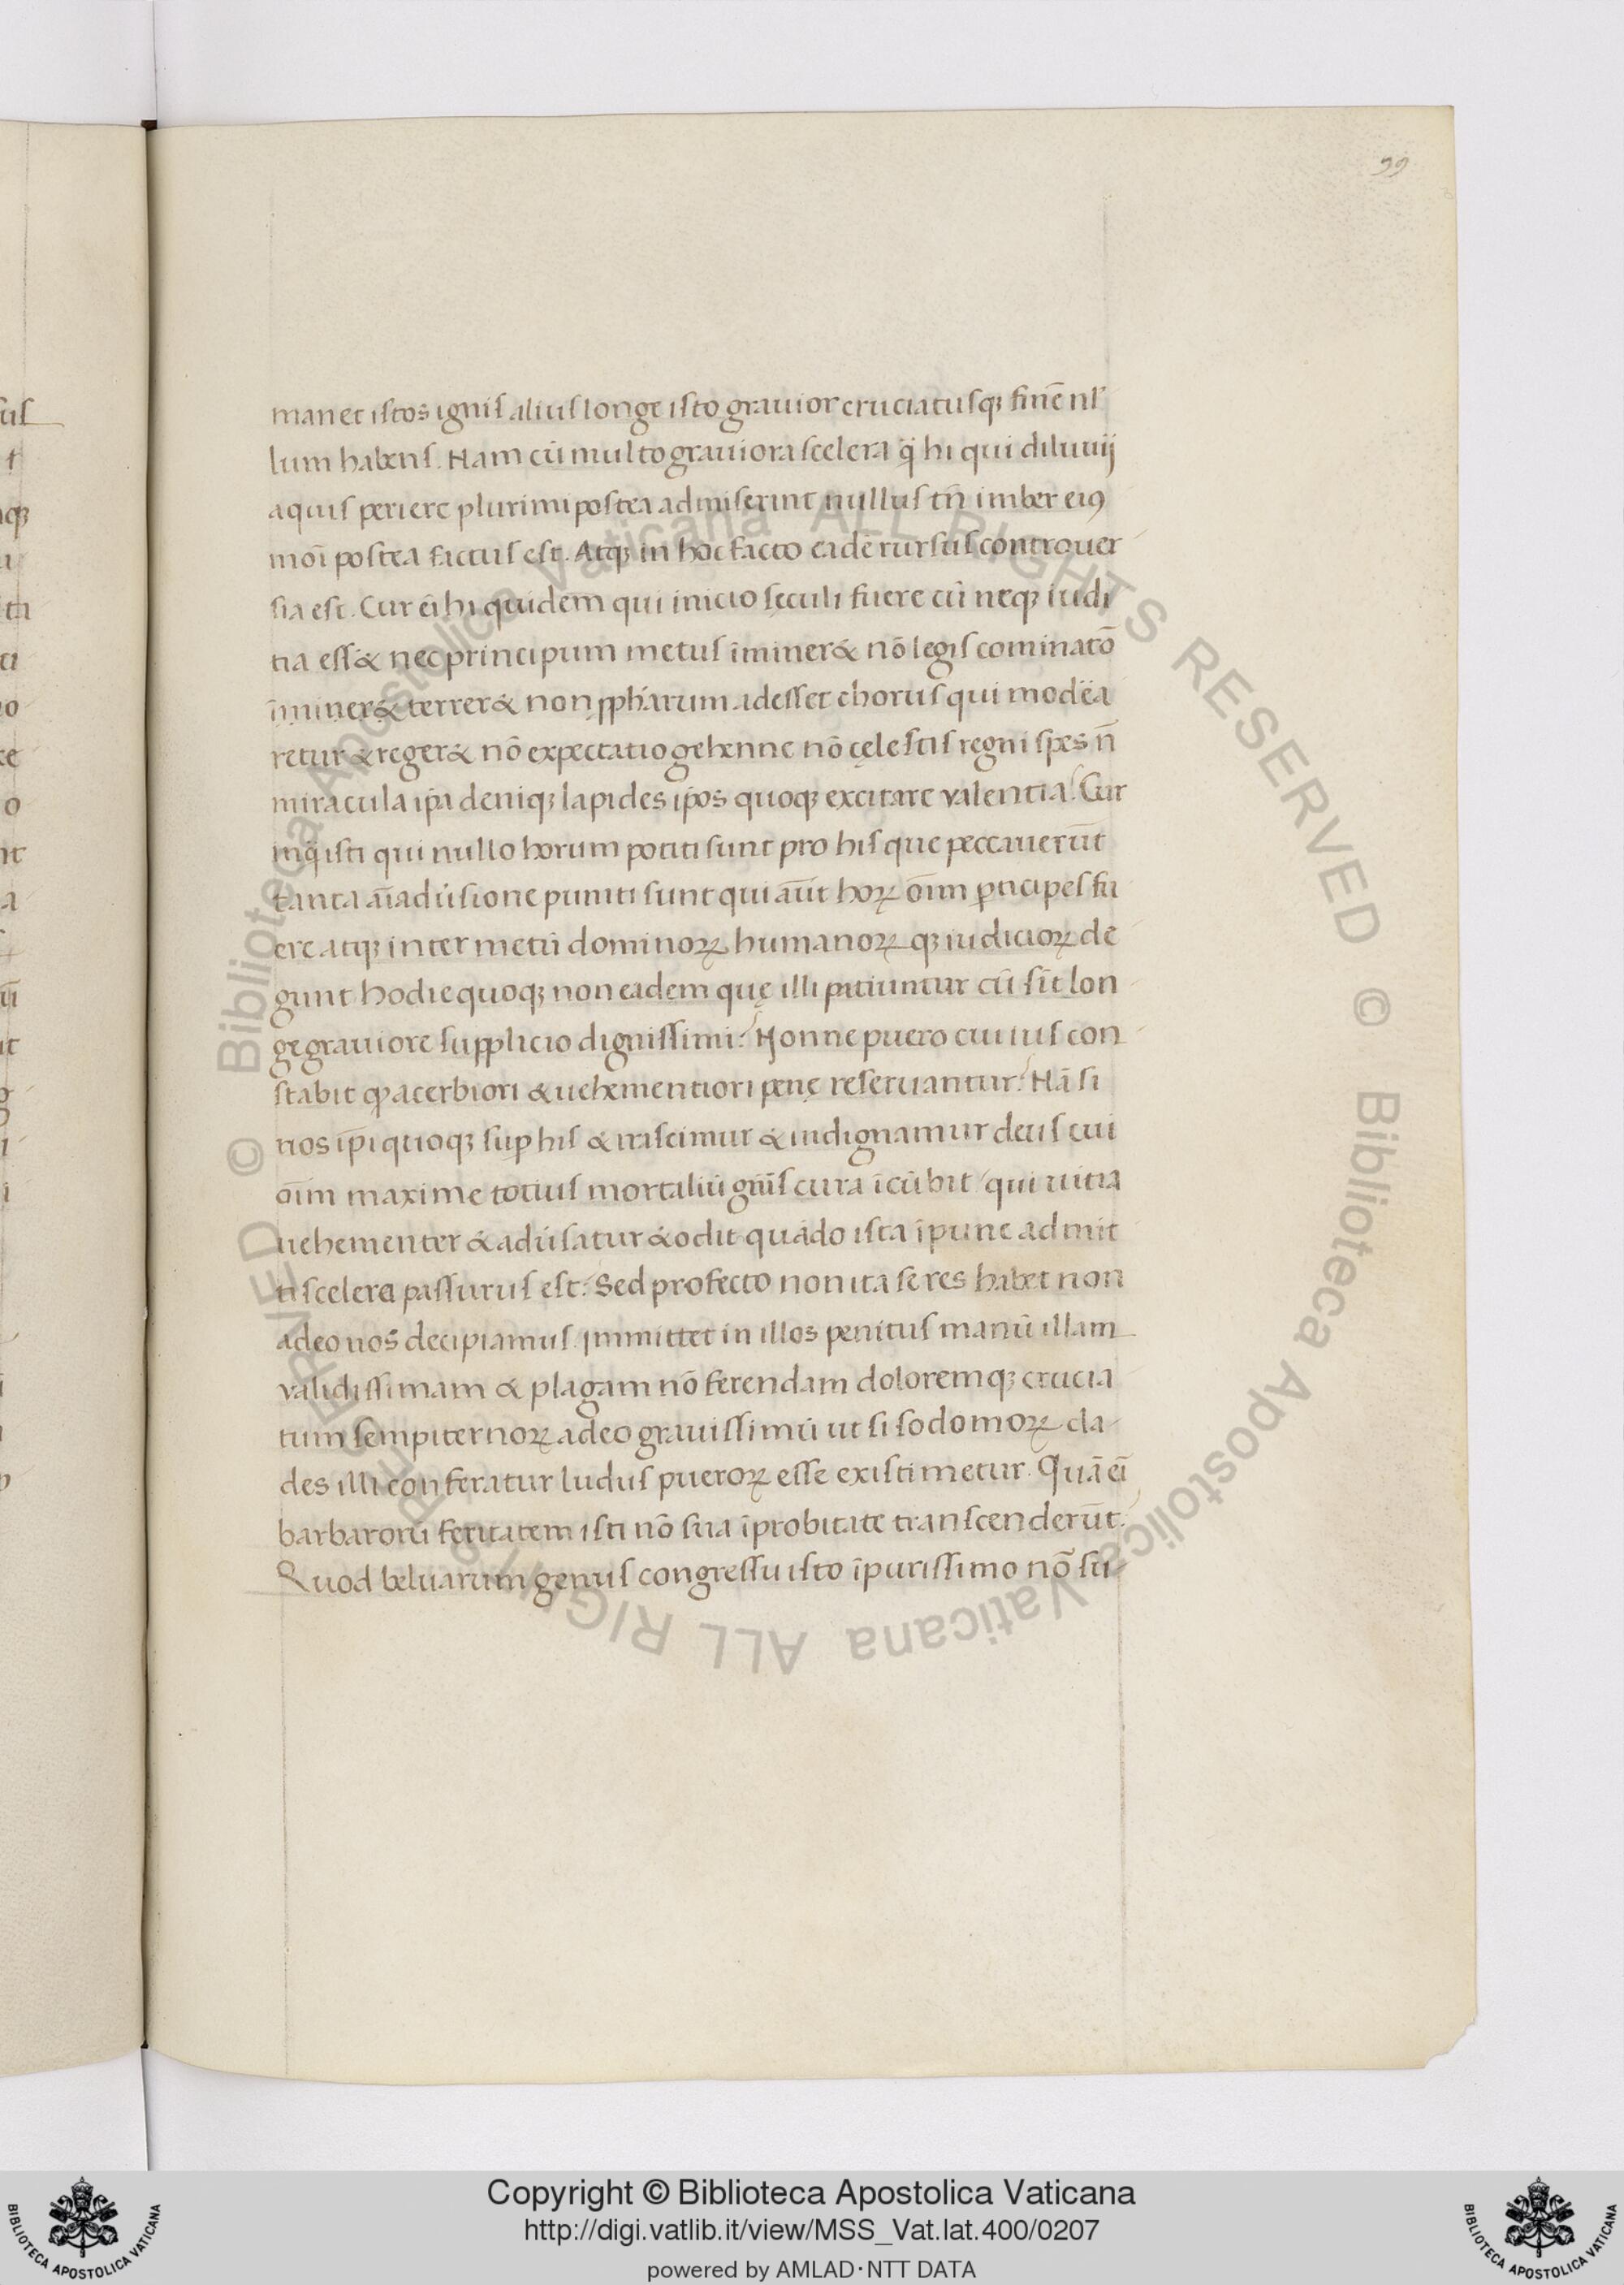 99
manet istos ignis alius longe isto grauior cruciatusqꝫ finē nl̄
lum habens. Nam cū multo grauiora scelera q̄ hi qui diluuij
aquis periere plurimi postea admiserint nullus tn̄ imber eiꝰ
moī postea factus est. Atqꝫ in hoc facto eadē rursus controuer
sia est. Cur eī hi quidem qui inicio sęculi fuere cū neqꝫ iudi
tia ess& nec principum metus īminer& nō legis cominatō
īminer& terrer& non ꝓpharum adesset chorus qui modēa
retur & reger& nō expectatio gehenne nō cęlestis regni spes n̄
miracula ip̄a deniqꝫ lapides ip̄os quoqꝫ excitare valentia? Cur
inq̄ isti qui nullo horum potiti sunt pro his que peccauerūt
tanta aīaduīsione puniti sunt qui aūt hoꝝ oīm ꝑticipes fu
ere atqꝫ inter metū dominoꝝ humanoꝝ qꝫ iudicioꝝ de
gunt hodie quoqꝫ non eadem quę illi patiuntur cū sīt lon
ge grauiore supplicio dignissimi? Nonne puero cuiuis con
stabit ꝙ acerbiori & uehementiori penę reseruantur? Nā si
nos ip̄i quoqꝫ suꝑ his & irascimur & indignamur deus cui
oīm maxime totius mortaliū gn̄is cura īcūbit / qui uitia
uehementer & aduīsatur & odit quādo ista īpune admit
ti scelera passurus est? Sed profecto non ita se res habet non
adeo nos decipiamus. Immittet in illos penitus manū illam
validissimam & plagam nō ferendam doloremqꝫ crucia
tum sempiternoꝝ adeo grauissimū ut si sodomoꝝ cla
des illi conferatur ludus pueroꝝ esse existimetur. Quā eī
barbarorū feritatem isti nō sua īprobitate transcenderūt?
Quod beluarum genus congressu isto īpurissimo nō su
Copyright © Biblioteca Apostolica Vaticana
http://digi.vatlib.it/view/MSS_Vat.lat.400/0207
powered by AMLAD·NTT DATA